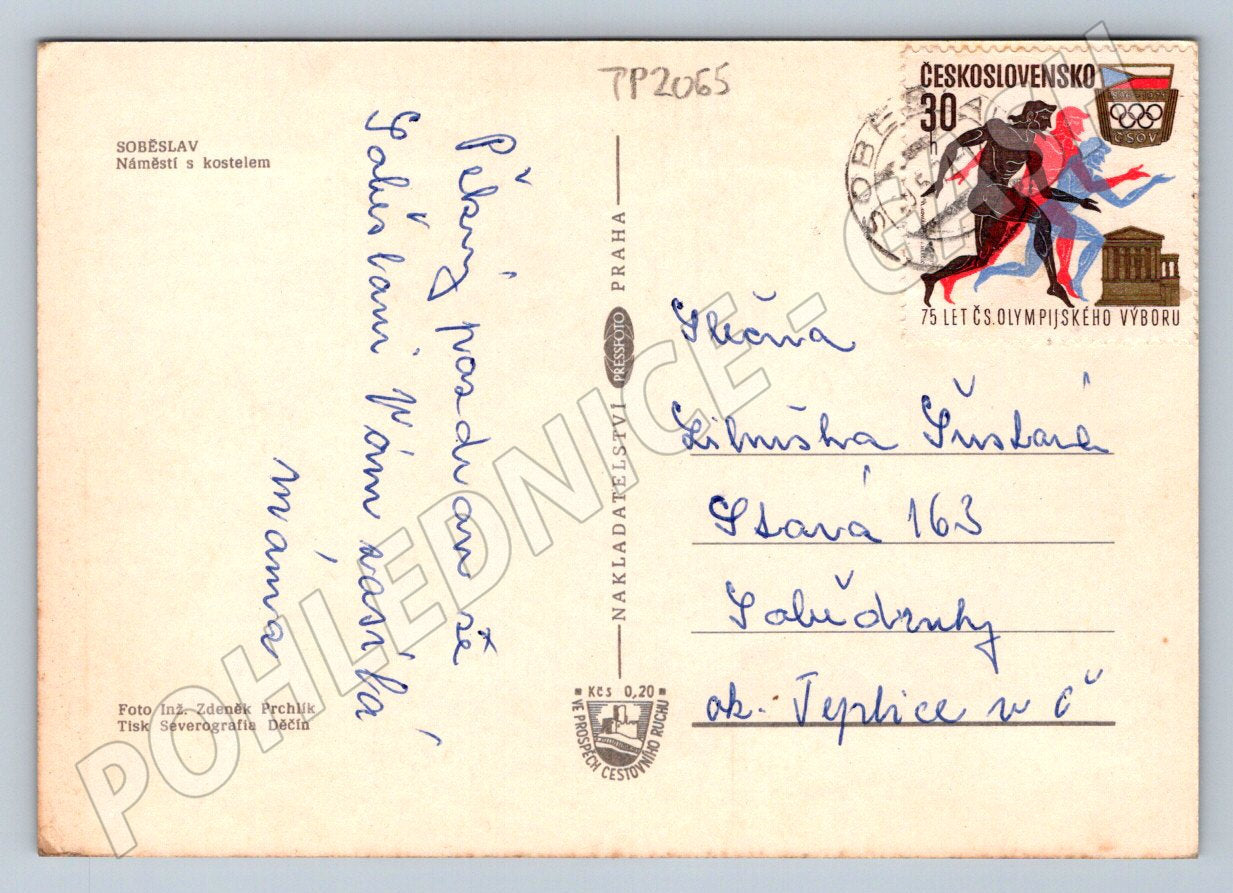 TP2065
SOBĚSLAV
Náměstí s kostelem
Pěkný pozdrav ze
Soběslavi vám zasílá
máma
Foto Inž. Zdeněk Prchlík
Tisk Severografia Děčín
NAKLADATELSTVÍ PRESSFOTO PRAHA
Kčs 0,20
VE PROSPĚCH CESTOVNÍHO RUCHU
ČESKOSLOVENSKO
30
h
ČSOV
75 LET ČS. OLYMPIJSKÉHO VÝBORU
Slečna
Libuška Šustová
Stará 163
Sobědruhy
ok. Teplice v Č
POHLEDNICE - CASH